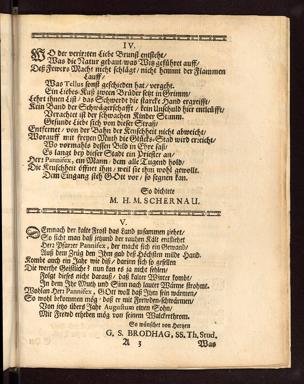 IV.
WO der verirrten Liebe Brunst entstehet/
Was die Natur gebaut/was Witz geführet auff/
Deß Fewers Macht nicht schlägt/nicht hemmt der Flammen
Lauff/
Was Tellus sonst geschieden hat/ vergeht.
Ein Liebes Kuß zween Brüder setzt in Grimm/
Lehrt ihnen List/ das Schwerdt die starcke Hand ergreifft/
Kein Band der Schwägerschafft/ kein Unschuld hier entläufft/
Verachtet ist der schwachen Kinder Stimm.
Gesunde Liebe sich von dieser Straß/
Entfernet/ von der Bahn der Keuschheit nicht abweicht/
Worauff mit freyen Muth die Glücks-Stad wird erreicht/
Es langt bey dieser Stadt ein Priester an/
Herr Pannifex, ein Mann/ dem alle Tugend hold/
Die Keuschheit öffnet ihm/ weil sie ihm wohl gewollt.
Dem Eingang sieh GOtt vor/ so segnen kan.
So dichtete
M. H. M. SCHERNAU.
V.
DEmnach der kalte Frost das Land zusammen ziehet/
So sieht man daß jetzund der rauhen Kält entfliehet
Herr Pfarrer Pannifex, der macht sich ein Gewand/
Auß dem Zeug den Ihm gab deß Höchsten milde Hand.
Kombt auch ein Jahr wie diß/ darinn sich so gesellen
Die werthe Geistliche? nun kan es ja nicht fehlen/
Folget dieses nicht darauß/ daß kalter Winter kombt/
In dem Ihr Muth und Sinn nach lauter Wärme strohmt.
Wohlan Herr Pannifex, GOtt woll daß Ihm sein wärmen/
So wohl bekommen mög/ daß er mit Frewden-schwärmen/
Von jetzo übers Jahr Augustum einen Sohn/
Mit Frewd erheben mög von seinem Walckerthrom.
So wünschet von Hertzen
G. S. BRODHAG, SS. Th. Stud.
A 3
Was